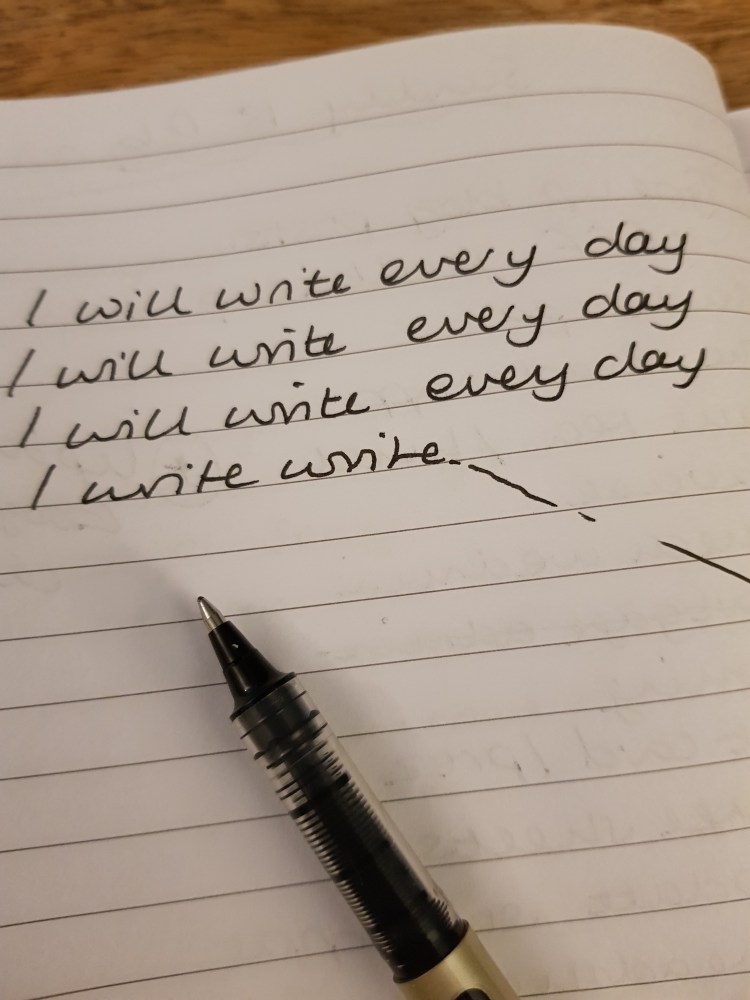 I will write every day
I will write every day
I will write every day
I write write